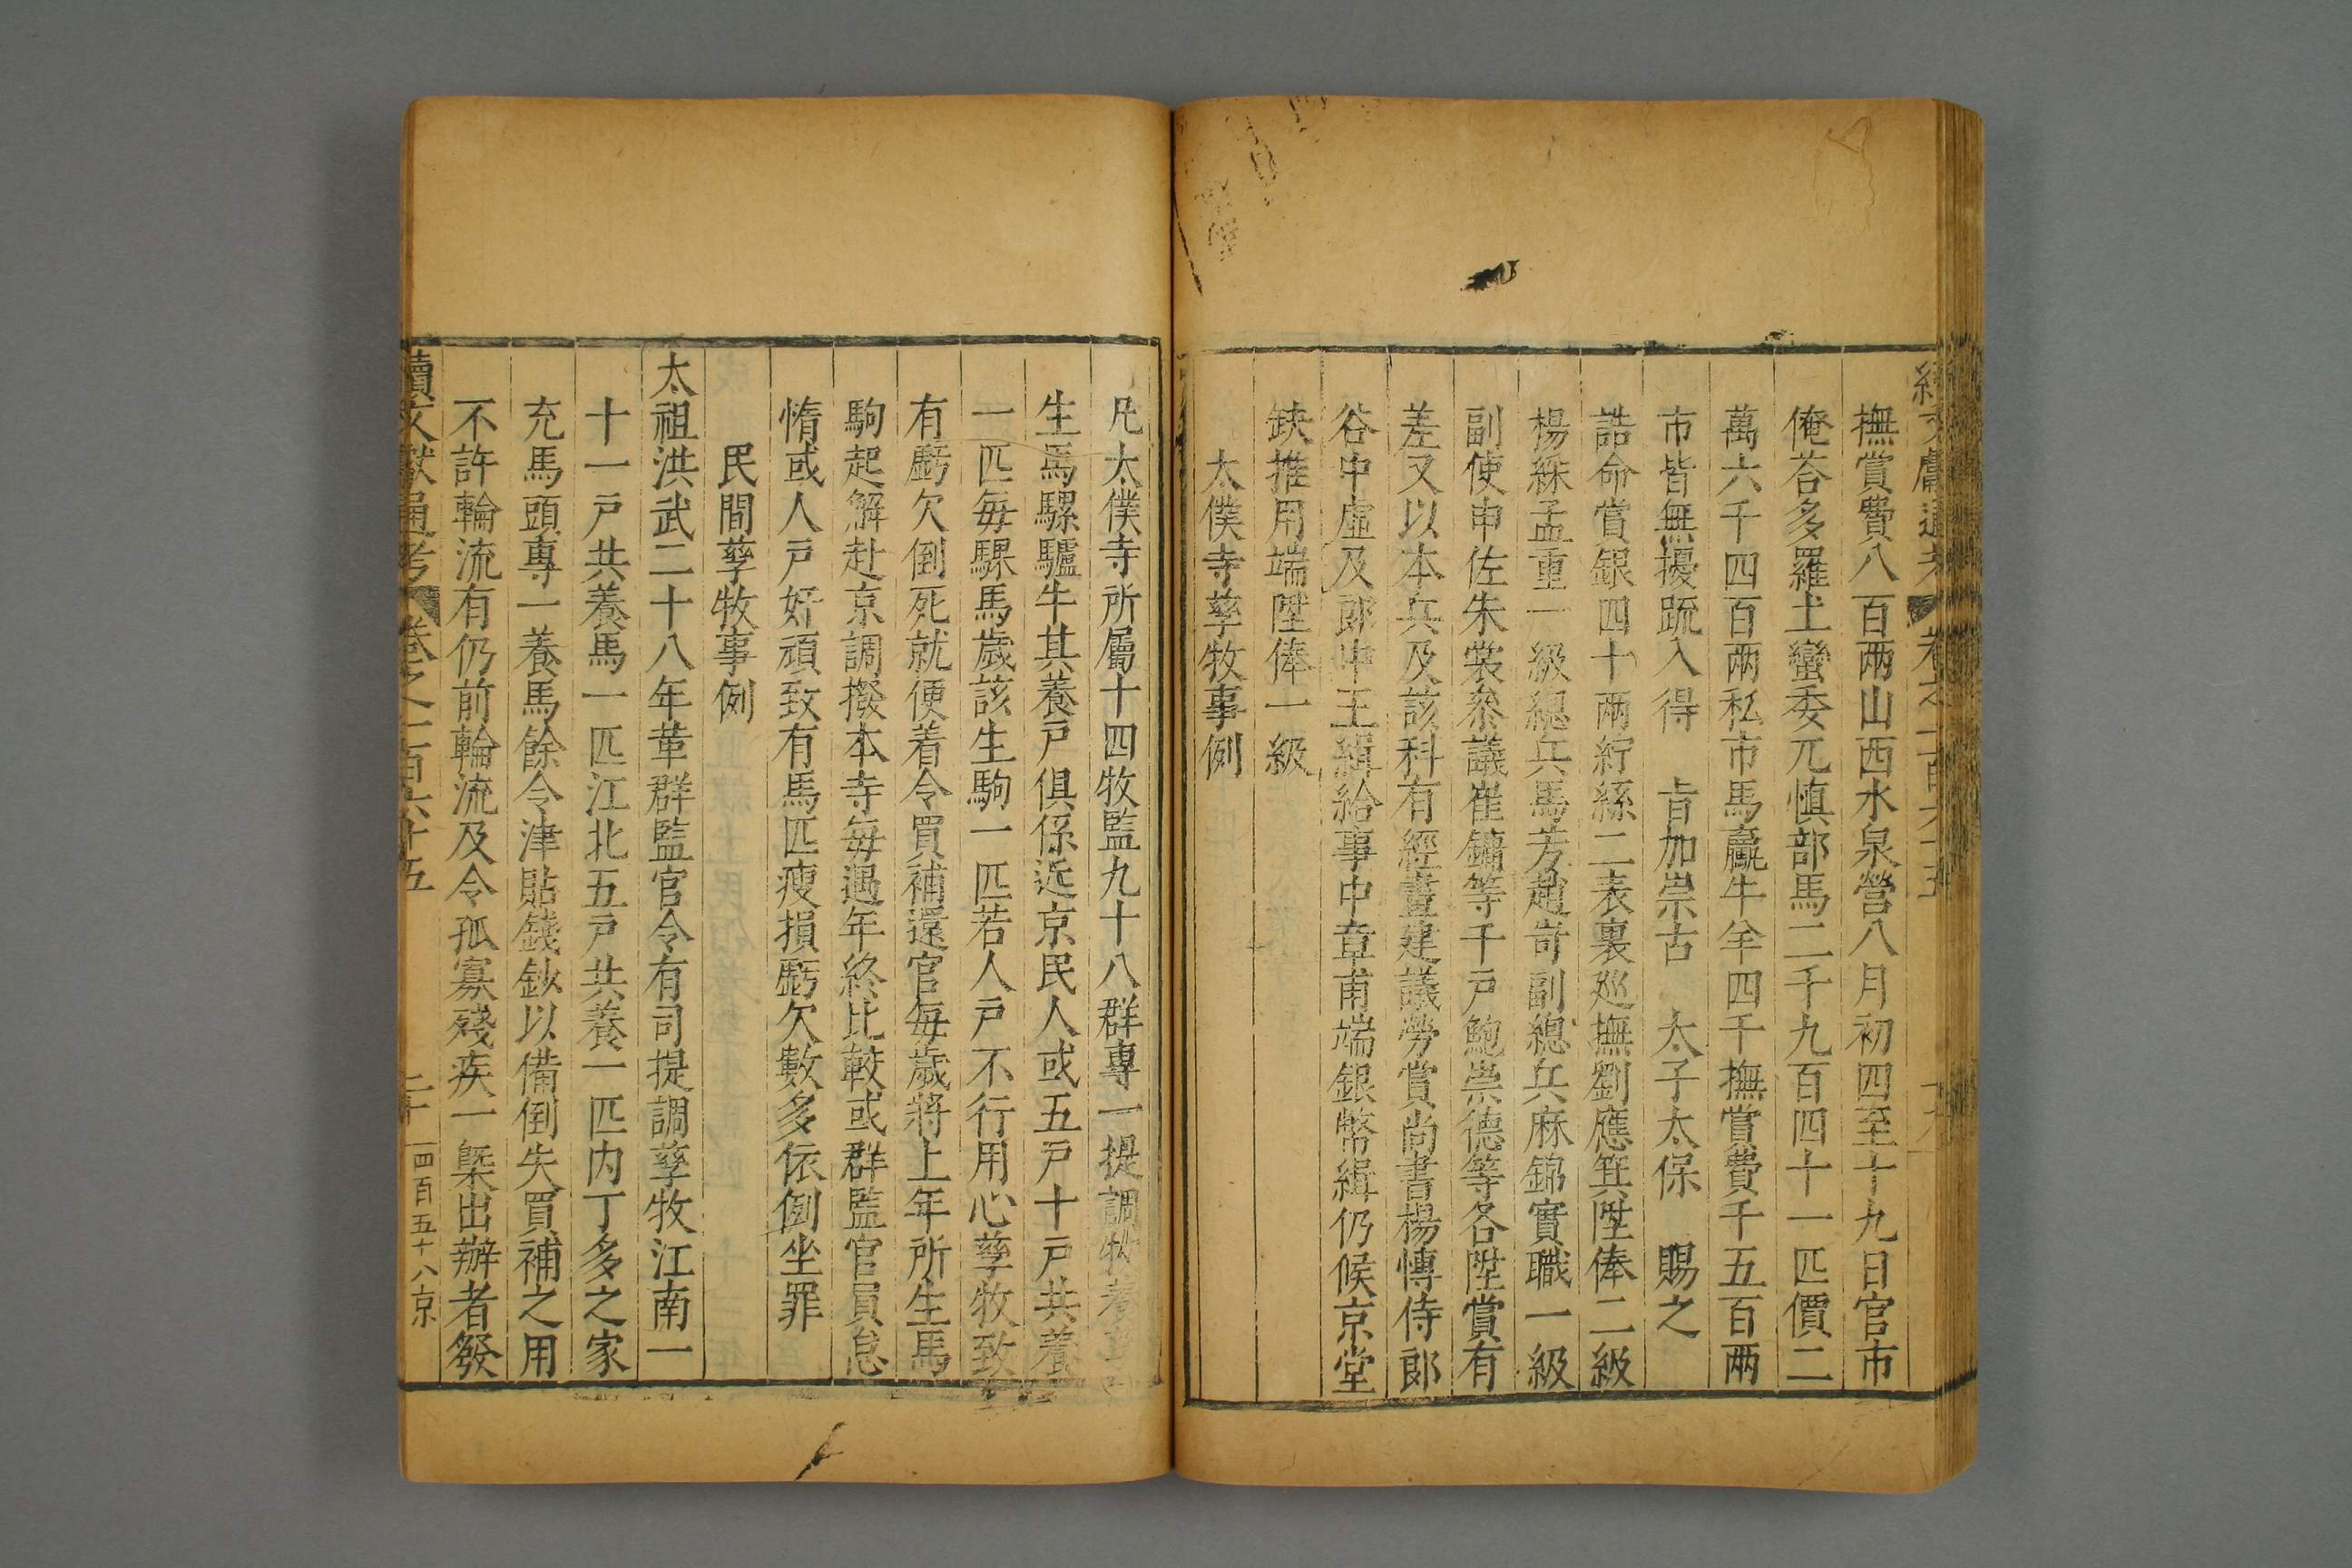 續文獻通考 卷之一百六十五
撫賞費八百兩山西水泉營八月初四至十九日官市
俺荅多羅土蠻委兀慎部馬二千九百四十一匹價二
萬六千四百兩私市馬驘牛羊四千撫賞費千五百兩
市皆無擾疏入得 旨加崇古 太子太保 賜之
誥命賞銀四十兩紵絲二表裏巡撫劉應箕陞俸二級
楊綵孟重一級總兵馬芳趙岢副總兵麻錦實職一級
副使申佐朱裳叅議崔鏞等千戸鮑崇德等各陞賞有
差又以本兵及該科有經畫建議勞賞尚書楊博侍郎
谷中虛及郎中王緝給事中章甫端銀幣緝仍候京堂
缺推用端陞俸一級
太僕寺孳牧事例
凡太僕寺所屬十四牧監九十八群專一提調牧養
生馬騾驢牛其養戸俱係近京民人或五戸十戸共養
一匹毎騍馬歲該生駒一匹若人戸不行用心孳牧致
有虧欠倒死就便着令買補還官毎歲將上年所生馬
駒起解赴京調撥本寺毎遇年終比較或群監官員怠
惰或人戸奸頑致有馬匹瘦損虧欠數多依例坐罪
民間孳牧事例
太祖洪武二十八年革群監官令有司提調孳牧江南一
十一戸共養馬一匹江北五戸共養一匹内丁多之家
充馬頭專一養馬餘令津貼錢鈔以備倒失買補之用
不許輪流有仍前輪流及令孤寡殘疾一槩出辦者發
續文獻通考 卷之一百六十五 二十 四百五十八京